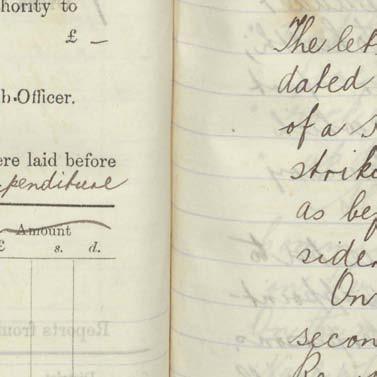 hority to
£ —
b-Officer.
ere laid before
penditure
Amount
£ s. d.
Reports from
The let
dated
of a
strike
as bef
sider
On
secon